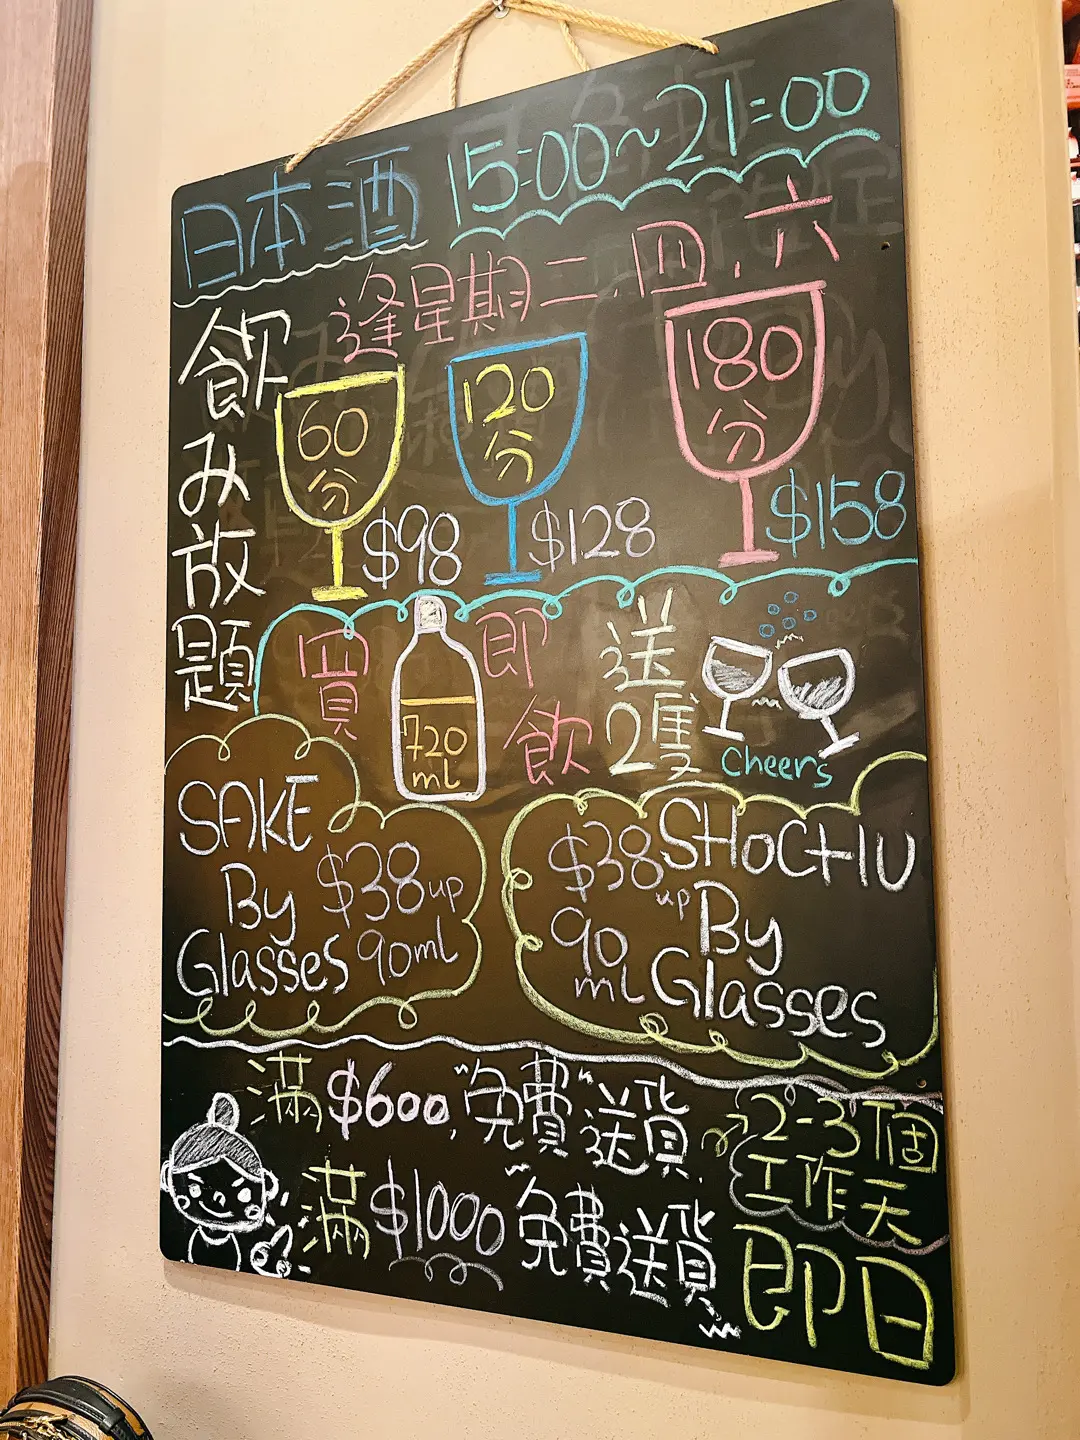 日本酒 15:00~21:00
逢星期二.四.六
飲み放題
60分
$98
120分
$128
180分
$158
買
720ml
即飲
送2隻
Cheers
SAKE
By
Glasses
$38up
90ml
SHOCHU
By
Glasses
$38up
90ml
滿$600,"免費"送貨
2-3個
工作天
滿$1000"免費送貨
即日